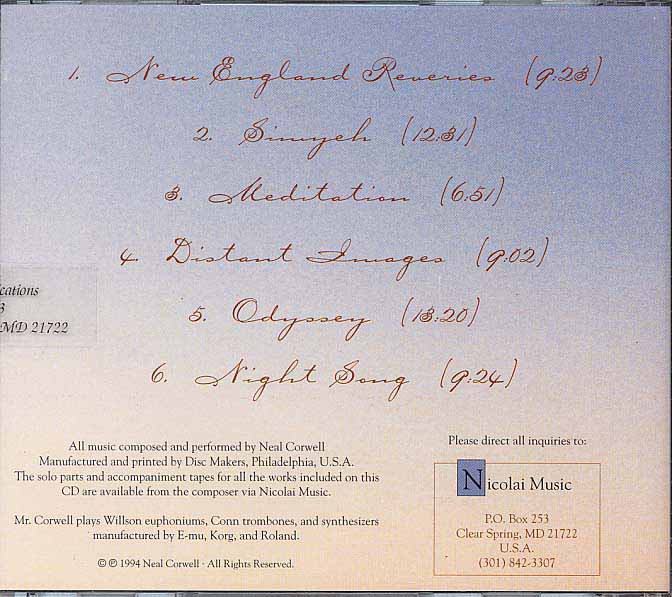 1. New England Reveries (9:23)
2. Sinuyeh (12:31)
3. Meditation (6:51)
4. Distant Images (9:02)
cations
3
MD 21722
5. Odyssey (13:20)
6. Night Song (9:24)
All music composed and performed by Neal Corwell
Manufactured and printed by Disc Makers, Philadelphia, U.S.A.
The solo parts and accompaniment tapes for all the works included on this
CD are available from the composer via Nicolai Music.
Mr. Corwell plays Willson euphoniums, Conn trombones, and synthesizers
manufactured by E-mu, Korg, and Roland.
© ℗ 1994 Neal Corwell · All Rights Reserved.
Please direct all inquiries to:
Nicolai Music
P.O. Box 253
Clear Spring, MD 21722
U.S.A.
(301) 842-3307